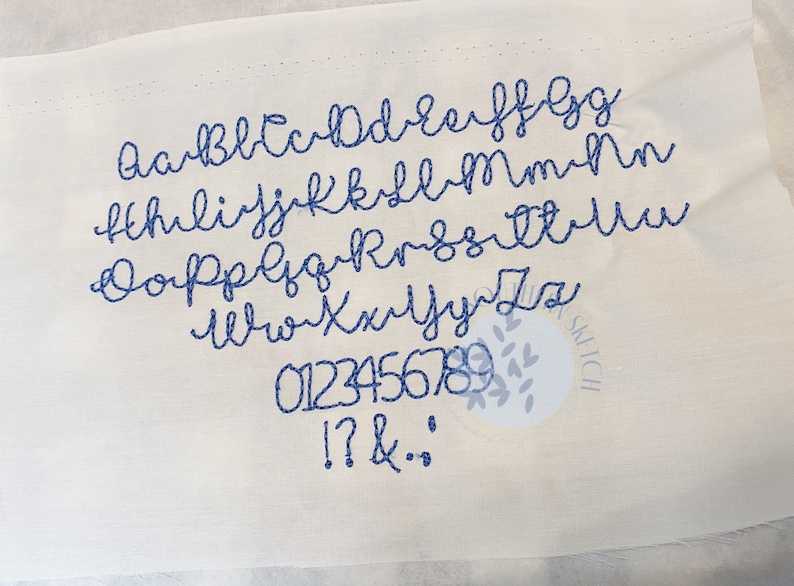 AaBbCcDdEeFfGg
HhIiJjKkLlMmNn
OoPpQqRrSsTtUu
WwXxYyZz
0123456789
!?&.,;'
SOUTHERN SKETCH